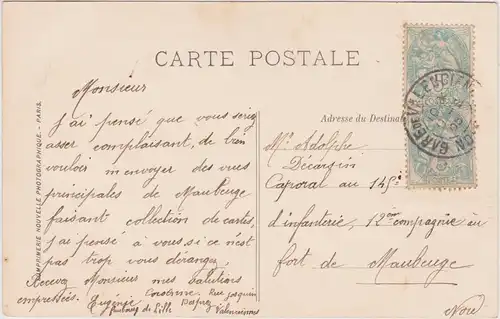 CARTE POSTALE
Monsieur
J'ai pensé que vous seriez
asser complaisant, de bien
vouloir m'envoyer des vues
principales de Maubeuge
faisant collection de cartes,
j'ai pensé à vous si ce n'est
pas trop vous déranger
Recevez Monsieur mes salutations
empressées. Eugénie
Rue jacquin
faubourg de Lille
Valenciennes
Adresse du Destinata
Mr Adolphe
Décarpin
Caporal au 145e
d'infanterie, 12ème compagnie au
fort de Maubeuge
Nord
IMPRIMERIE NOUVELLE PHOTOGRAPHIQUE - PARIS.
GARE DE VALENCIENNES